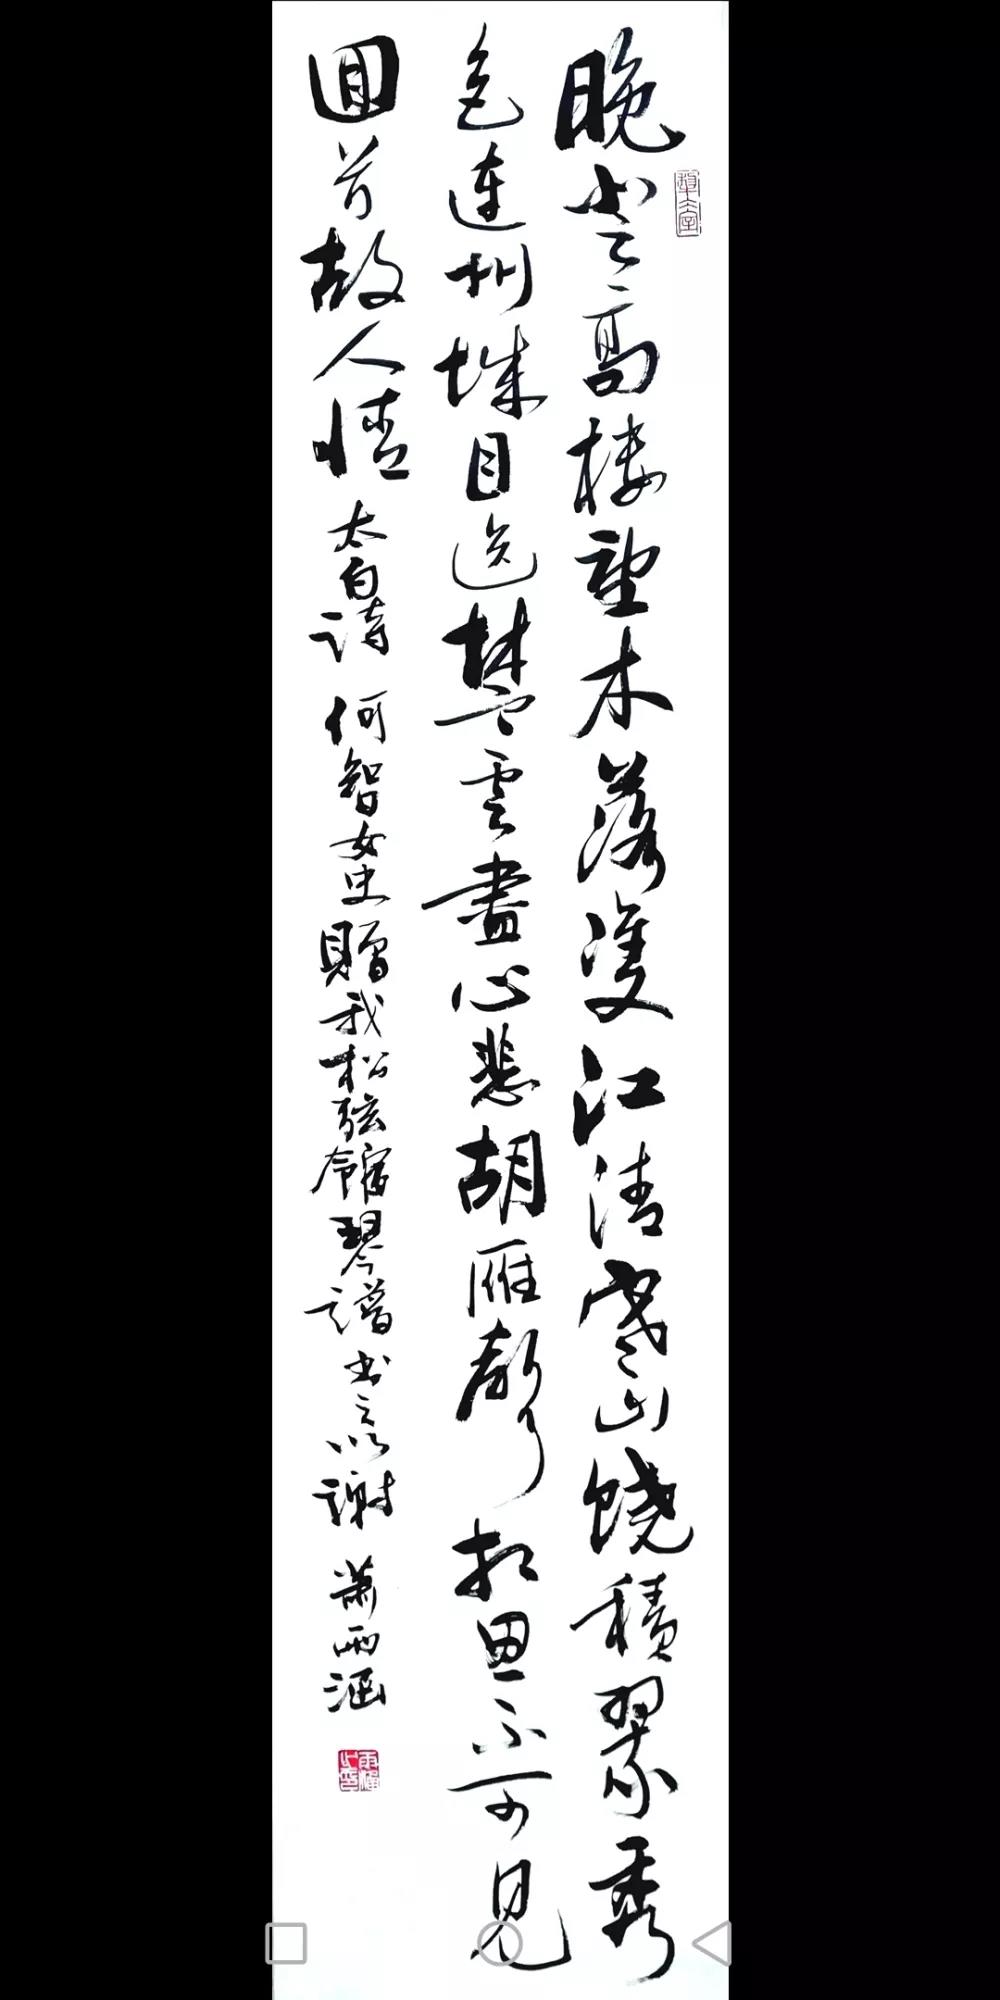 晚登高樓望木落雙江清寒山饒積翠秀
色連州城目送楚雲盡心悲胡雁聲相思不可見
回首故人情 太白詩 何智女史贈我松弦館琴譜書之以謝 蕭雨涵